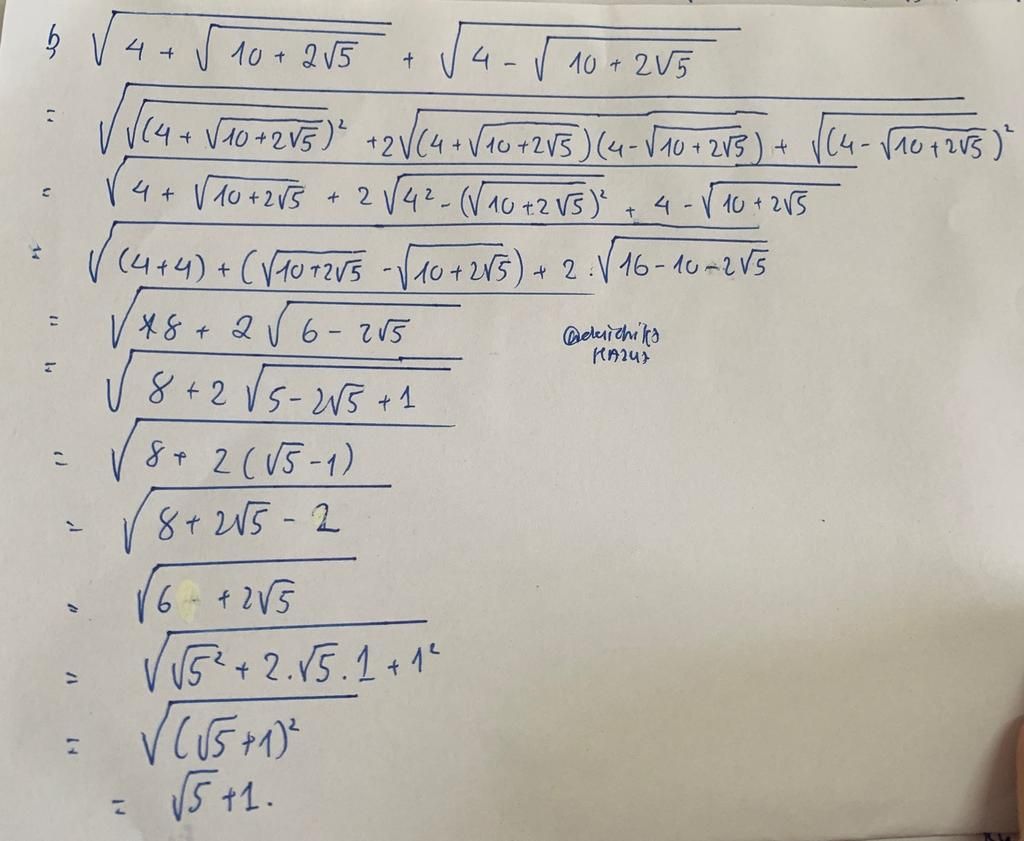 b, √(4 + √(10 + 2√5)) + √(4 - √(10 + 2√5))
= √(√(4 + √(10+2√5))² + 2√((4+√(10+2√5))(4-√(10+2√5))) + √(4-√(10+2√5))²)
= √(4 + √(10+2√5) + 2√(4² - (√(10+2√5))²) + 4 - √(10+2√5))
= √((4+4) + (√(10+2√5) - √(10+2√5)) + 2.√(16-10-2√5))
= √(8 + 2√(6 - 2√5))
= √(8 + 2√(5-2√5+1))
= √(8 + 2(√5-1))
= √(8 + 2√5 - 2)
= √(6 + 2√5)
= √(√5² + 2.√5.1 + 1²)
= √((√5+1)²)
= √5 + 1.